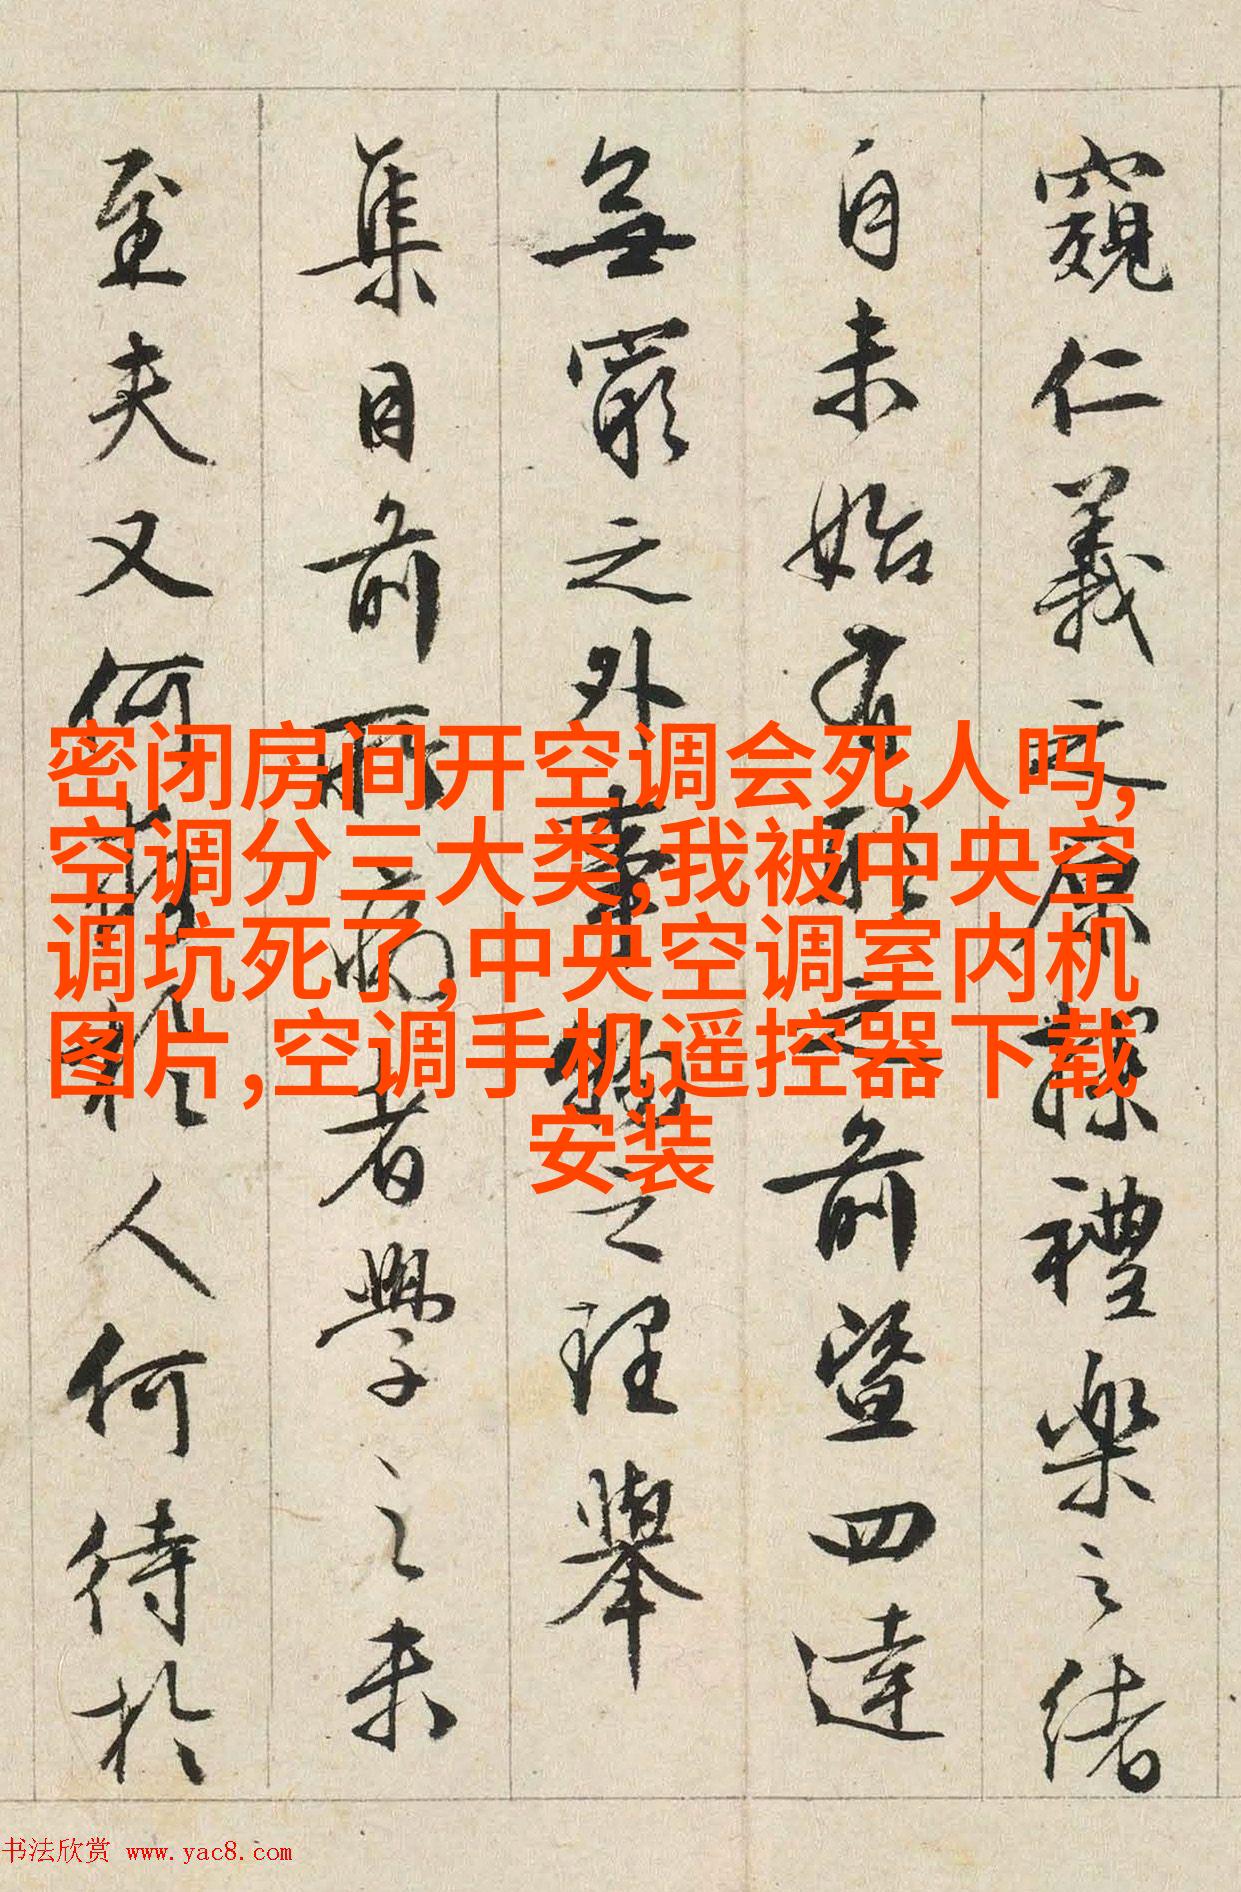 窺仁義之原探禮樂之緒
自未始有形之前暨四達
無窮之外事物之理舉
集目前所病者學之未
至夫又何難於人何待於
密闭房间开空调会死人吗,
空调分三大类,我被中央空
调坑死了,中央空调室内机
图片,空调手机遥控器下载
安装
书法欣赏 www.yac8.com